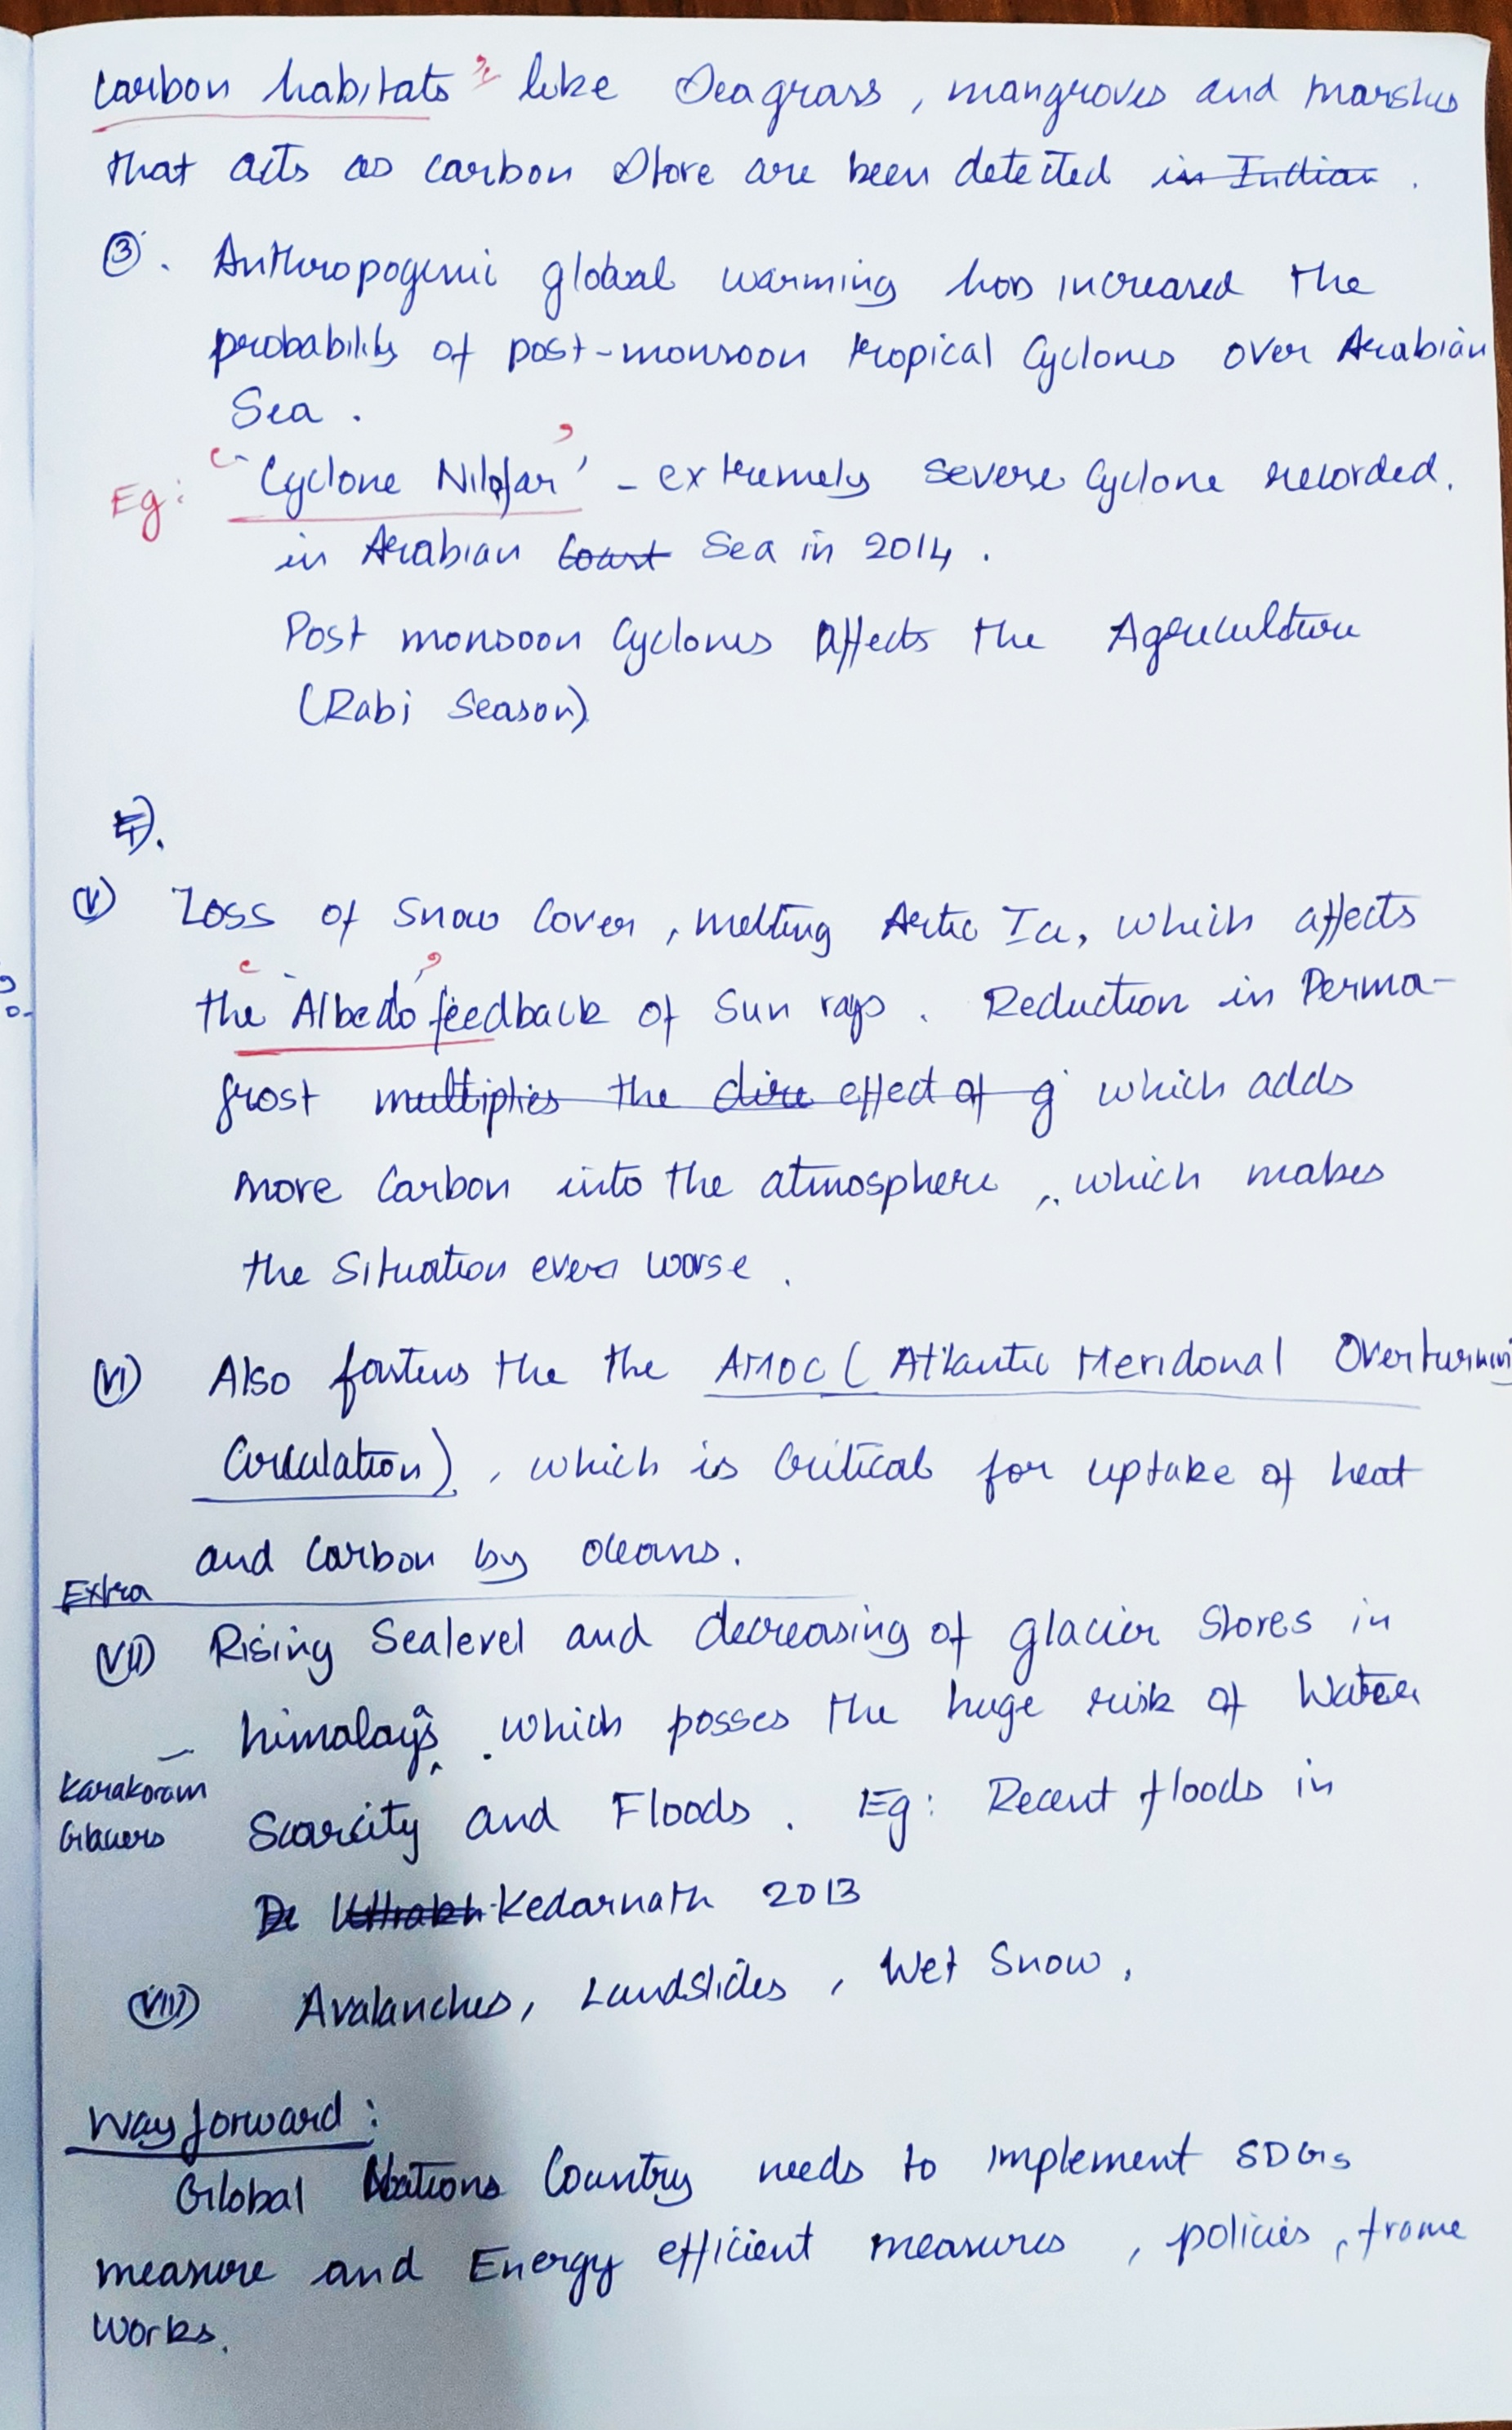 Carbon habitats" like Seagrass, mangroves and marshes
that acts as carbon Store are been detected in Indian.
③. Anthropogenic global warming has increased the
probability of post-monsoon tropical Cyclones over Arabian
Sea.
Eg: "Cyclone Nilofar" - extremely severe Cyclone recorded.
in Arabian Coast Sea in 2014.
Post monsoon Cyclones Affects the Agriculture
(Rabi Season)
4).
(V) Loss of Snow Cover, melting Artic Ice, which affects
the 'Albedo' feedback of Sun rays. Reduction in Perma-
frost multiplies the dire effect of g which adds
more Carbon into the atmosphere, which makes
the Situation even worse.
(VI) Also fastens the the AMOC (Atlantic Meridonal Overturning
Circulation), which is Critical for uptake of heat
and Carbon by oceans.
Extra
(VII) Rising Sealevel and decreasing of glacier Stores in
himalays, which posses the huge risk of Water
Karakoram
Glaciers
Scarcity and Floods. Eg: Recent floods in
De Uttrakh Kedarnath 2013
(VIII) Avalanches, Landslides, Wet Snow,
Way forward:
Global Nations Country needs to implement SDGs
measure and Energy efficient measures, policies, frame
works.